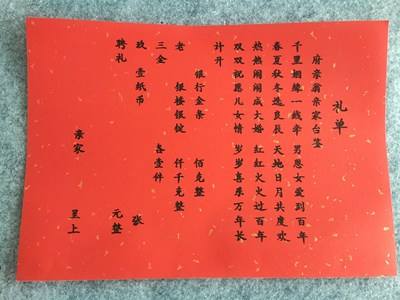 礼单
府亲翁亲家台鉴
千里姻缘一线牵 男恩女爱到百年
春夏秋冬选良辰 天地日月共度欢
热热闹闹成大婚 红红火火过百年
双双祝愿儿女情 岁岁喜乐万年长
计开
银行金条 佰克整
老 银楼银锭 仟千克整
三金 各壹件
玖壹纸币 张
聘礼 元整
亲家 呈上